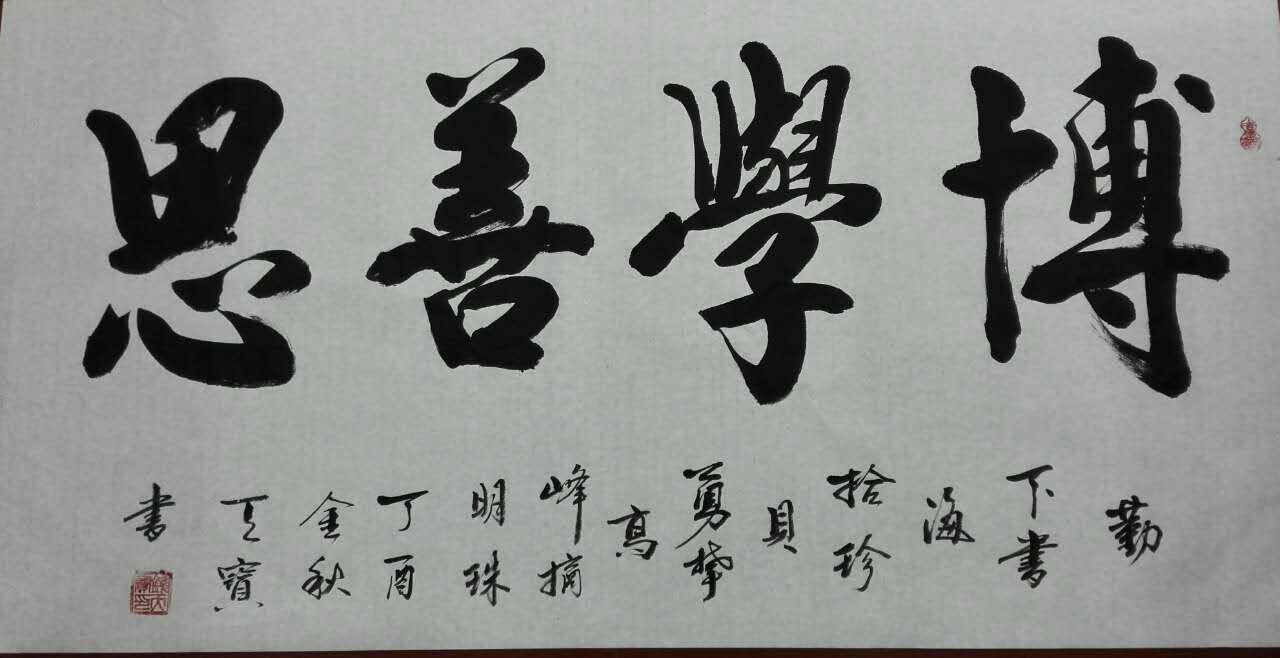 博學善思
勤
下書
海
拾珍
貝
勇攀
高
峰摘
明珠
丁酉
金秋
天寶
書